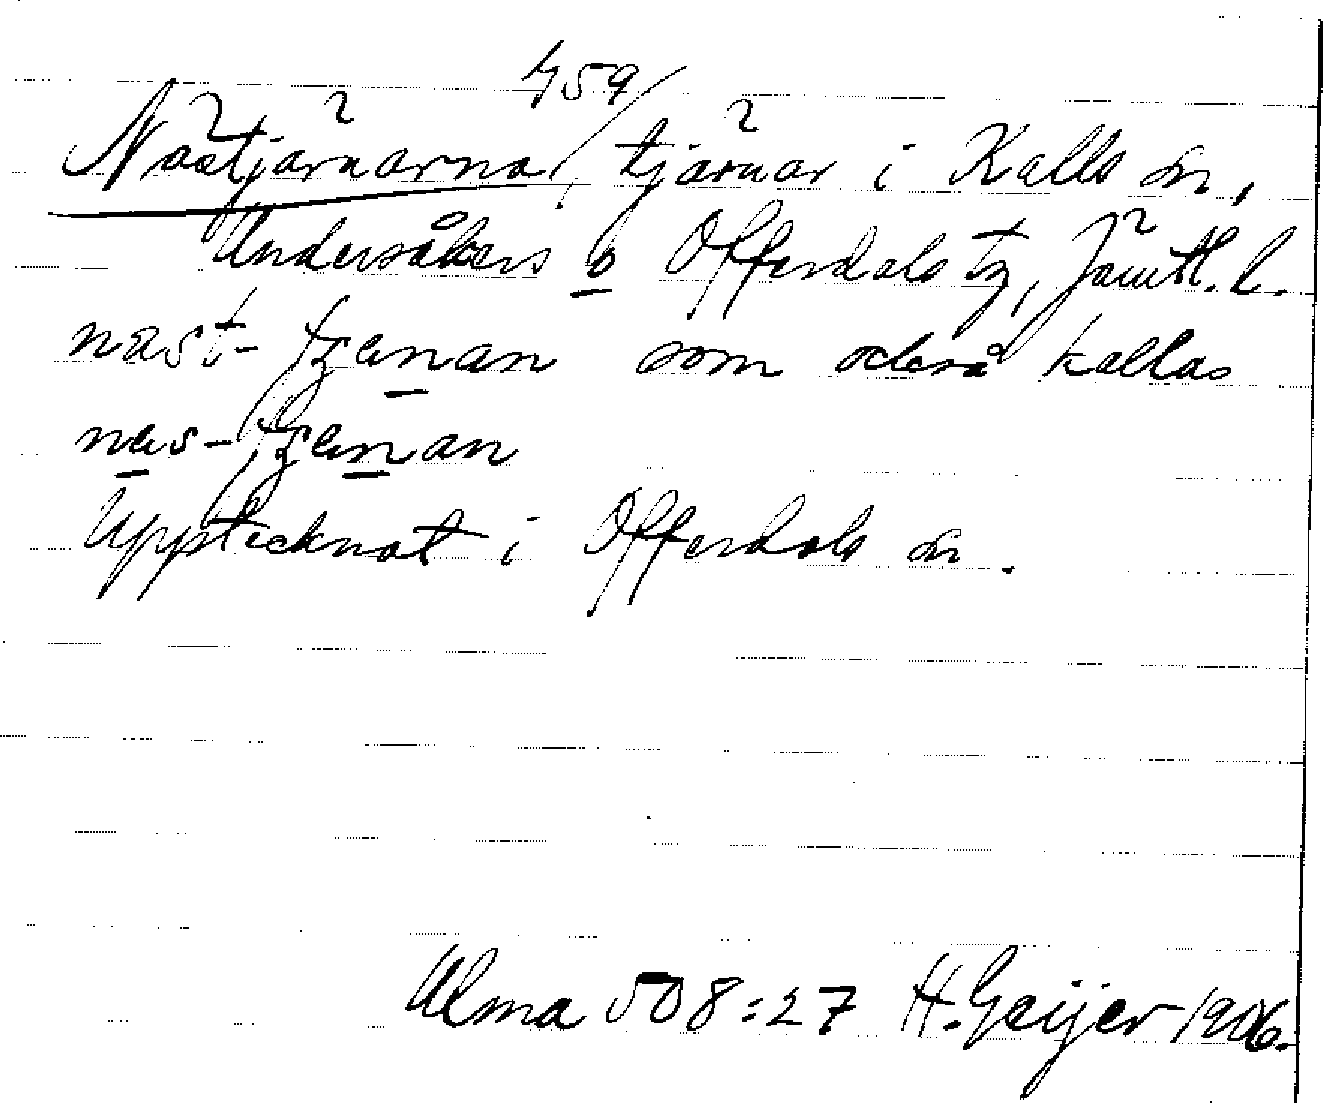 459/
Nästjärnarna, tjärnar i Kalls sn,
Undersåkers o Offerdals tg, Jämtl. l.
næst-tʒænan som också kallas
næs-tʒænan
Upptecknat i Offerdals sn.
Ulma 508:27 H. Geijer 1906.